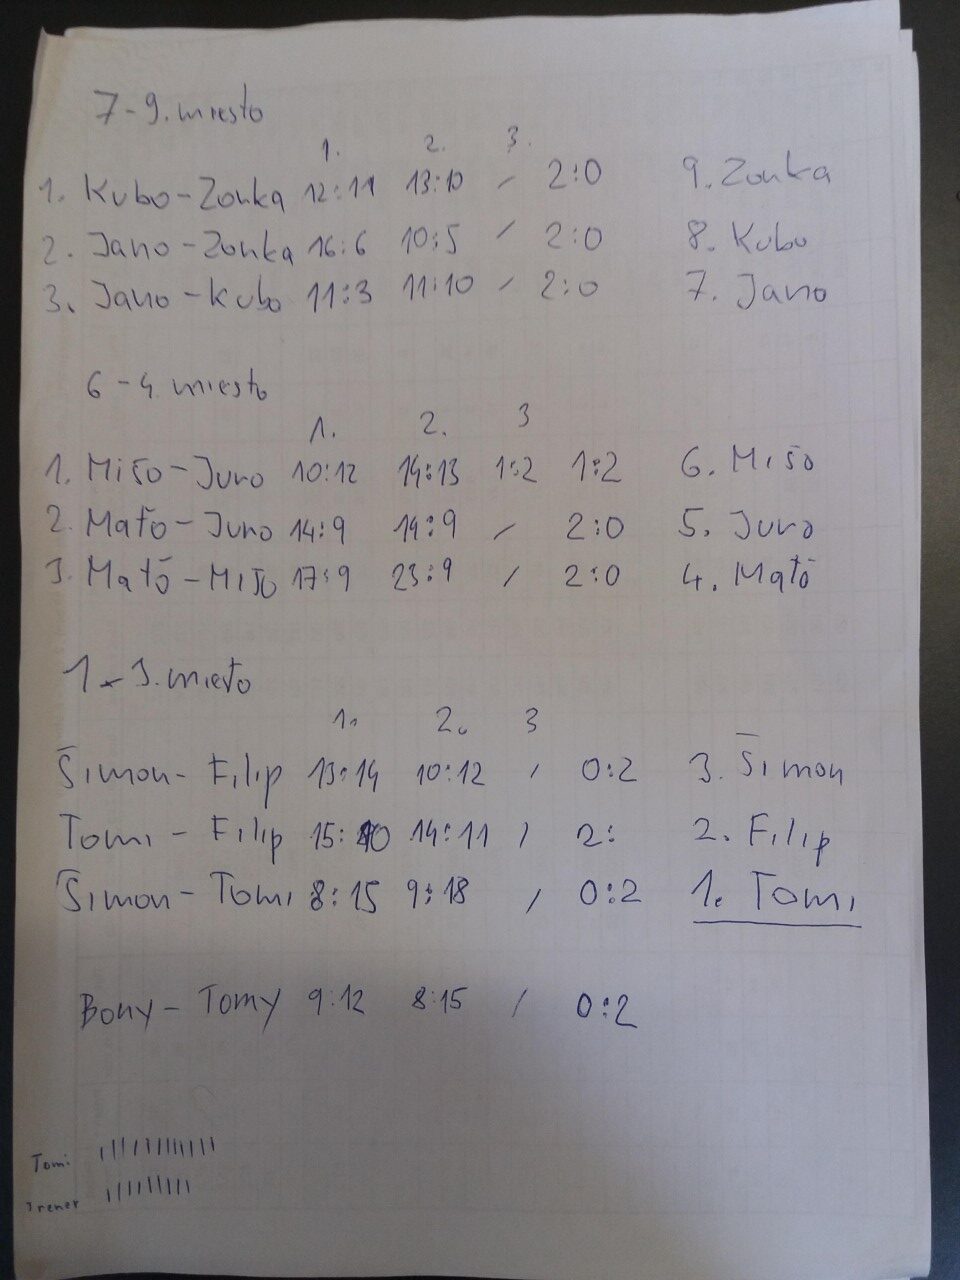 7-9. miesto
1. 2. 3.
1. Kubo-Zonka 12:11 13:10 / 2:0 9. Zonka
2. Jano-Zonka 16:6 10:5 / 2:0 8. Kubo
3. Jano-Kubo 11:3 11:10 / 2:0 7. Jano
6-4. miesto
1. 2. 3
1. Mišo-Juro 10:12 14:13 1:2 1:2 6. Mišo
2. Maťo-Juro 14:9 14:9 / 2:0 5. Juro
3. Maťo-Mišo 17:9 23:9 / 2:0 4. Maťo
1-3. miesto
1. 2. 3
Šimon-Filip 13:14 10:12 / 0:2 3. Šimon
Tomi-Filip 15:10 14:11 / 2: 2. Filip
Šimon-Tomi 8:15 9:18 / 0:2 1. Tomi
Bony-Tomy 9:12 8:15 / 0:2
Tomi
Trener